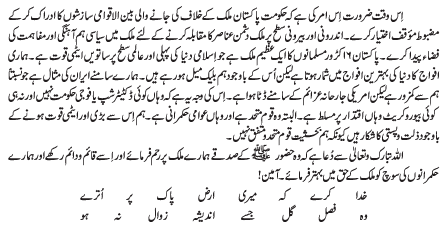 اِس وقت ضرورت اِس امر کی ہے کہ حکومت پاکستان ملک کے خلاف کی جانے والی بین الاقوامی سازشوں کا ادراک کر کے
مضبوط مؤقف اختیار کرے۔ اندرونی اور بیرونی سطح پر ملک دشمن عناصر کا مقابلہ کرنے کے لئے ملک میں سیاسی ہم آہنگی اور مفاہمت کی
فضاء پیدا کرے۔ پاکستان ۱۶ کروڑ مسلمانوں کا ایک عظیم ملک ہے جو اسلامی دنیا کی پہلی اور عالمی سطح پر ساتویں ایٹمی قوت ہے۔ ہماری
افواج کا دنیا کی بہترین افواج میں شمار ہوتا ہے لیکن اُس کے باوجود ہم بلیک میل ہو رہے ہیں۔ ہمارے سامنے ایران کی مثال ہے جو اگرچہ
ہم سے کمزور ہے لیکن امریکی جارحانہ عزائم کے سامنے ڈٹا ہوا ہے۔ اِس کی وجہ یہ ہے کہ وہاں کوئی ڈکٹیٹر شپ یا فوجی حکومت نہیں اور نہ ہی
کوئی بیوروکریٹ وہاں اقتدار پر مسلط ہے۔ البتہ وہ قوم متحد ہے اور وہاں عوامی حکمرانی ہے۔ ہم اِس سے بڑی اور ایٹمی قوت ہونے کے
باوجود ذلت و پستی کا شکار ہیں کیونکہ ہم بحیثیت قوم متحد و متفق نہیں۔
اللہ تبارک وتعالیٰ سے دُعا ہے کہ وہ حضور ﷺ کے صدقے ہمارے ملک پر رحم فرمائے اور اِسے قائم و دائم رکھے اور ہمارے
حکمرانوں کی سوچ کو ملک کے حق میں بہتر فرمائے۔ آمین!
خدا کرے کہ میری ارض پاک پر اُترے
وہ فصل گل جسے اندیشہ زوال نہ ہو